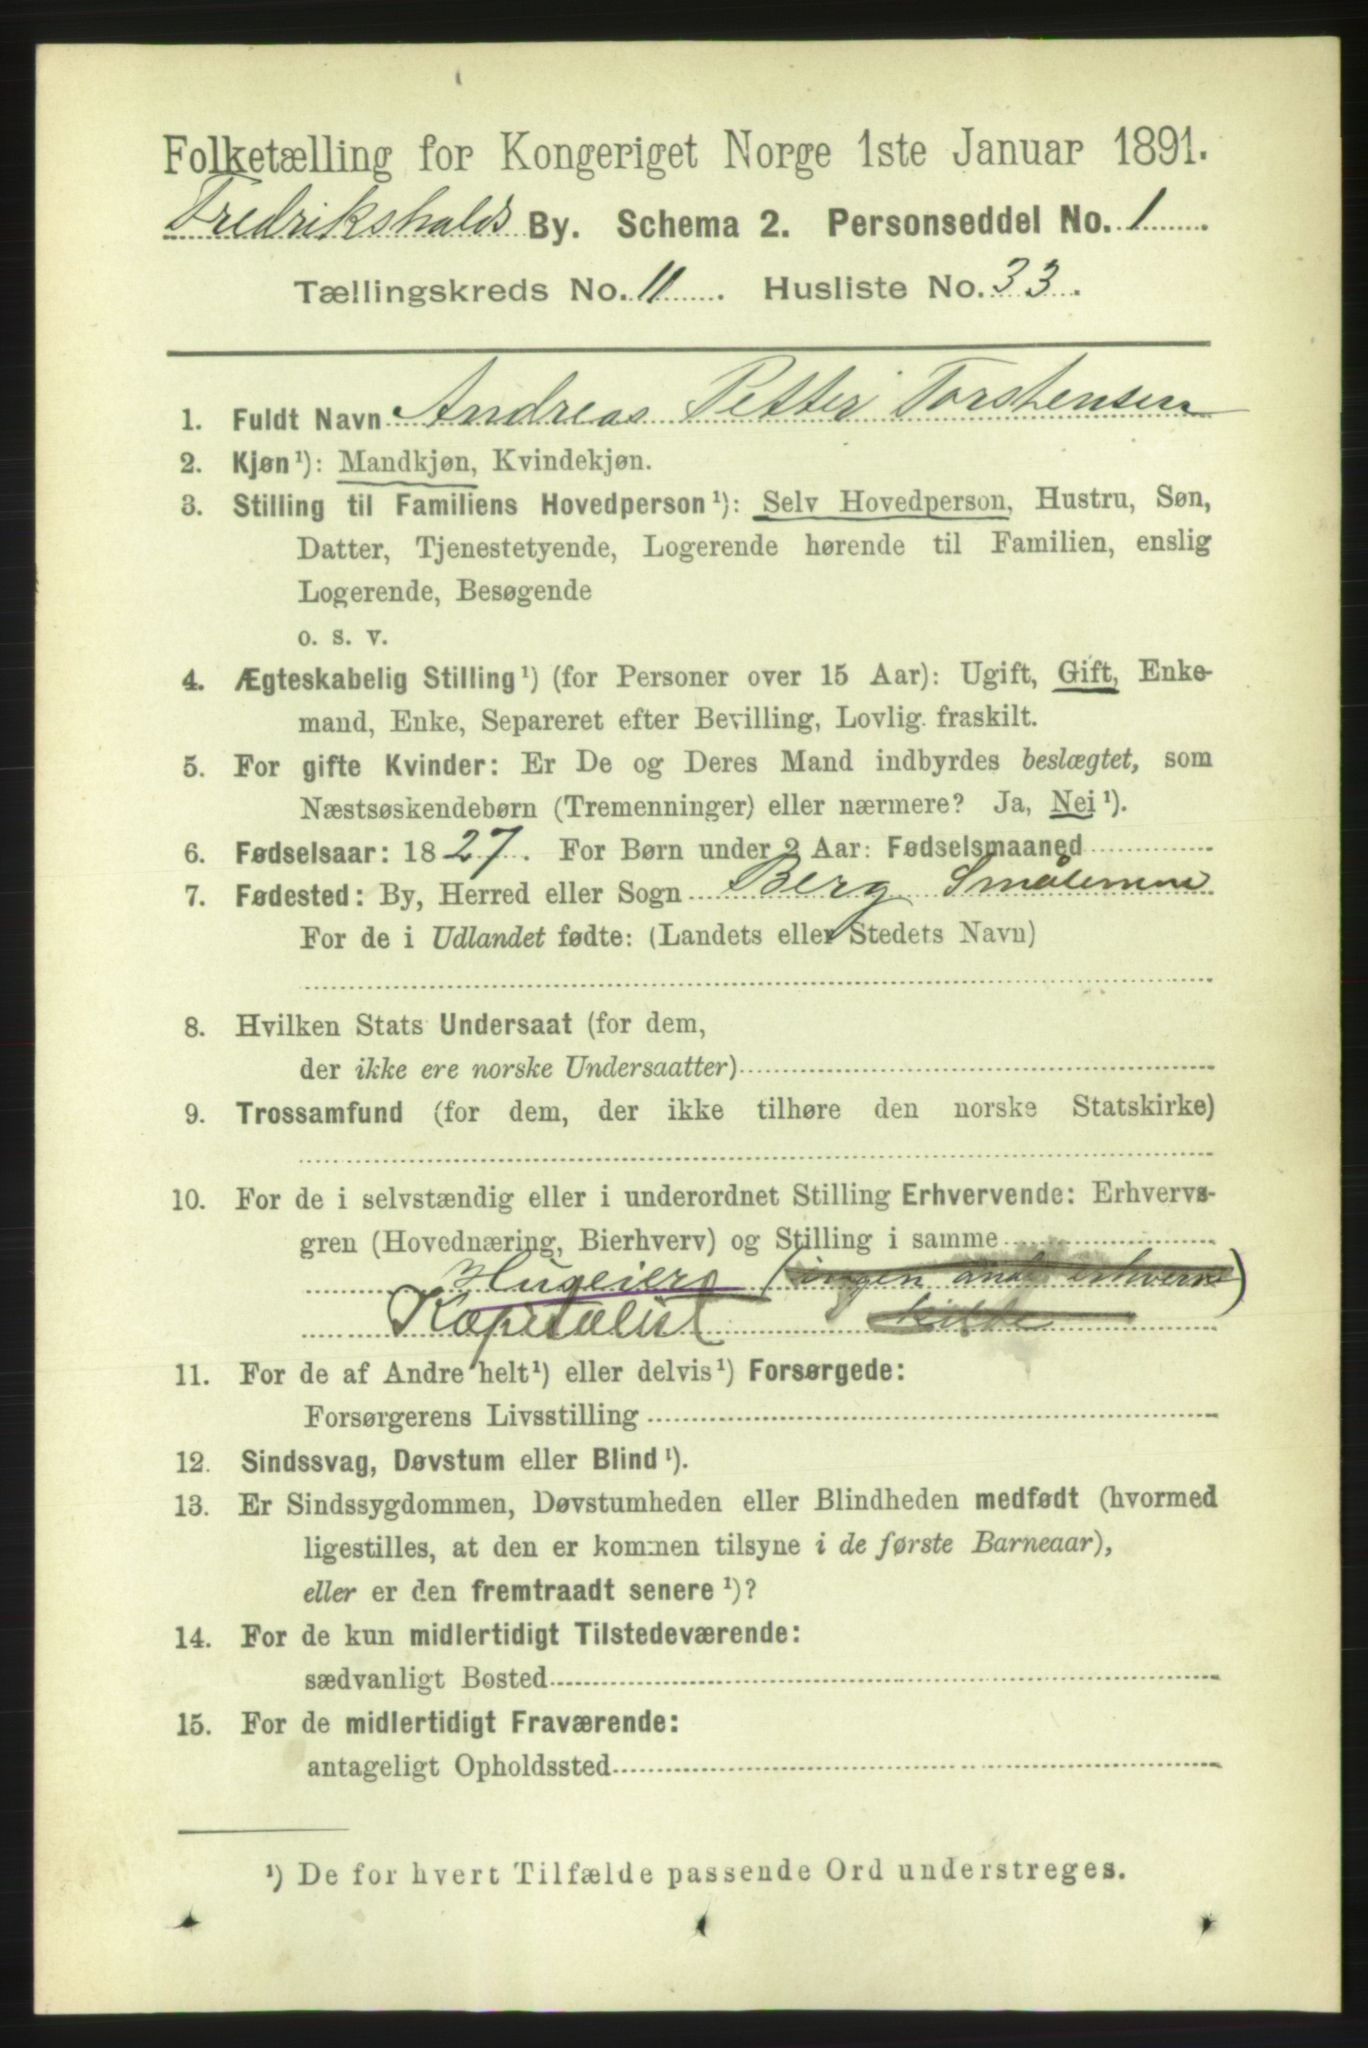 Folketælling for Kongeriget Norge 1ste Januar 1891.
Fredrikshalds By. Schema 2. Personseddel No. 1
Tællingskreds No. 11. Husliste No. 33.
1. Fuldt Navn Andreas Petter Torstensen
2. Kjøn¹): Mandkjøn, Kvindekjøn.
3. Stilling til Familiens Hovedperson¹): Selv Hovedperson, Hustru, Søn,
Datter, Tjenestetyende, Logerende hørende til Familien, enslig
Logerende, Besøgende
o. s. v.
4. Ægteskabelig Stilling¹) (for Personer over 15 Aar): Ugift, Gift, Enke-
mand, Enke, Separeret efter Bevilling, Lovlig fraskilt.
5. For gifte Kvinder: Er De og Deres Mand indbyrdes beslægtet, som
Næstsøskendebørn (Tremenninger) eller nærmere? Ja, Nei¹).
6. Fødselsaar: 1827. For Børn under 2 Aar: Fødselsmaaned
7. Fødested: By, Herred eller Sogn Berg Smålenene
For de i Udlandet fødte: (Landets eller Stedets Navn)
8. Hvilken Stats Undersaat (for dem,
der ikke ere norske Undersaatter)
9. Trossamfund (for dem, der ikke tilhøre den norske Statskirke)
10. For de i selvstændig eller i underordnet Stilling Erhvervende: Erhvervs-
gren (Hovednæring, Bierhverv) og Stilling i samme
Huseier (ingen andre erhvervs
Kapitalist kilde)
11. For de af Andre helt¹) eller delvis¹) Forsørgede:
Forsørgerens Livsstilling
12. Sindssvag, Døvstum eller Blind¹).
13. Er Sindssygdommen, Døvstumheden eller Blindheden medfødt (hvormed
ligestilles, at den er kommen tilsyne i de første Barneaar),
eller er den fremtraadt senere¹)?
14. For de kun midlertidigt Tilstedeværende:
sædvanligt Bosted
15. For de midlertidigt Fraværende:
antageligt Opholdssted
¹) De for hvert Tilfælde passende Ord understreges.